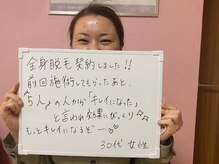 全身脱毛契約しました!!
前回施術してもらったあと、
"5人"の人から「キレイになった」
と言われ効果にびっくり♪♪
もっとキレイになるぞー♡
30代 女性